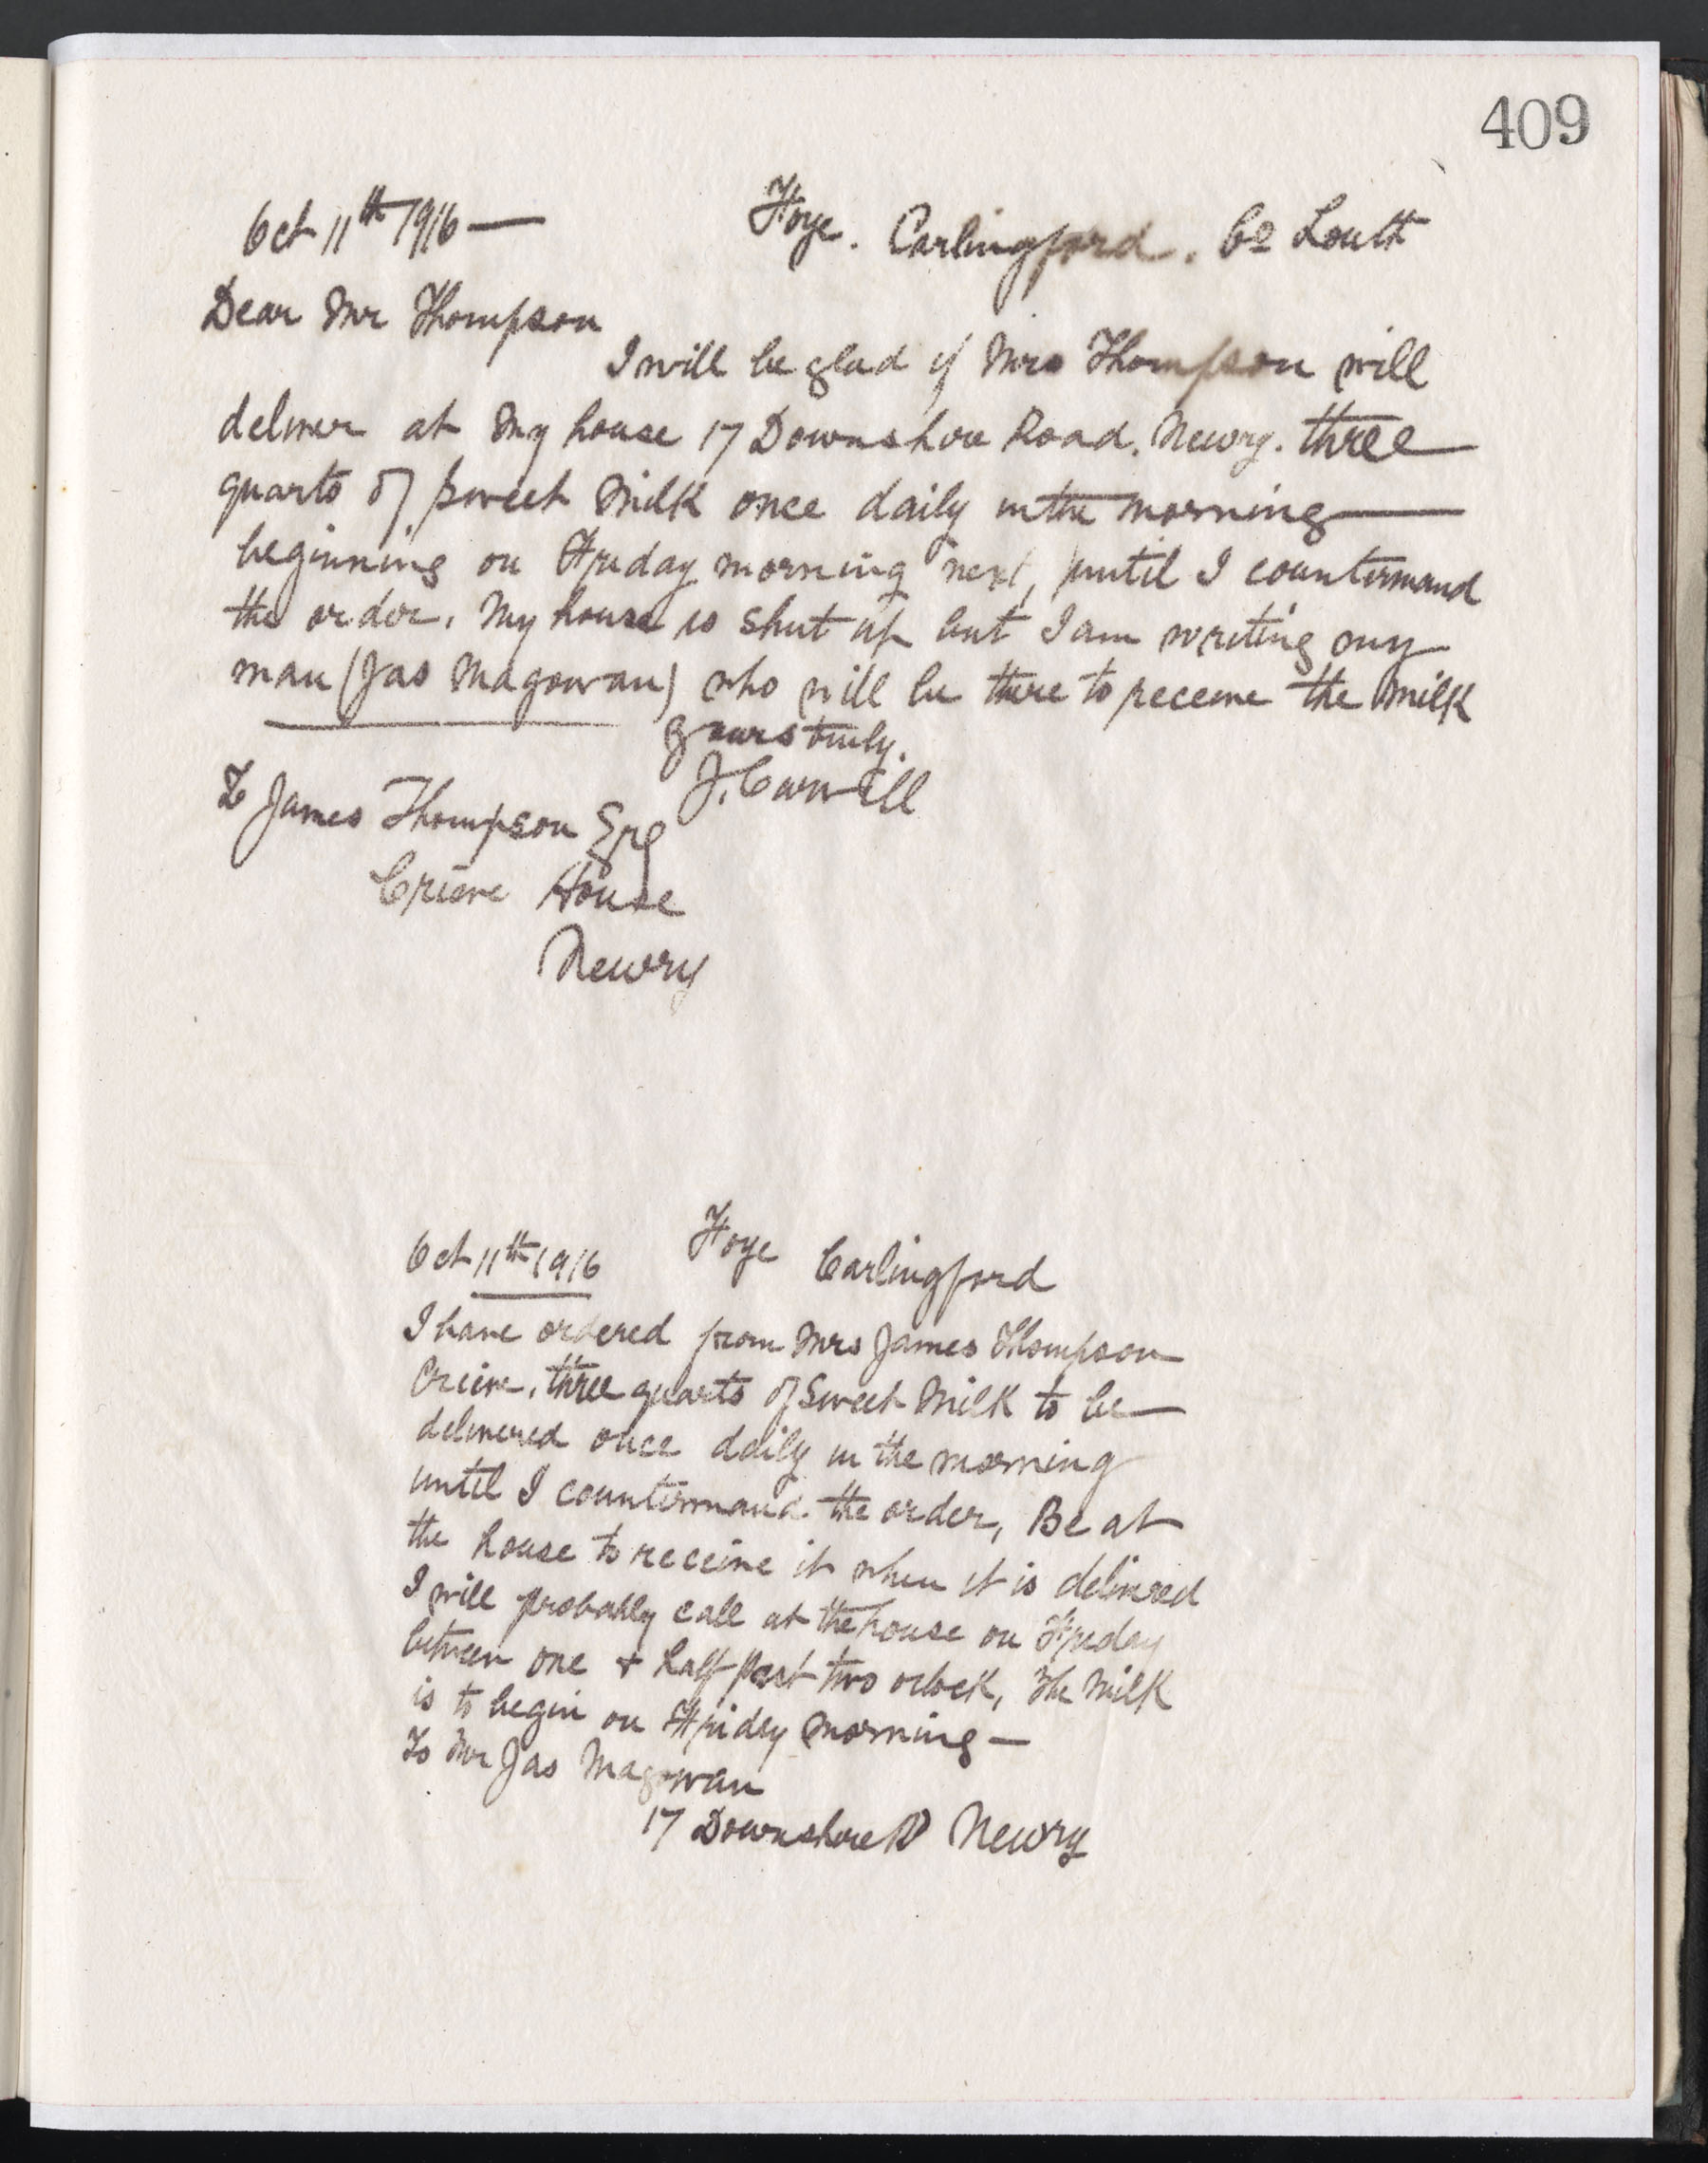 409
Oct 11th 1916 — Foye. Carlingford. Co Louth
Dear Mr Thompson
I will be glad if Mrs Thompson will
deliver at my house 17 Downshire Road. Newry. three
quarts of sweet Milk once daily in the morning
beginning on Friday morning next, until I countermand
the order. My house is shut up but I am writing my
man (Jas Magowan) who will be there to receive the milk
yours truly.
J. Carvill
To James Thompson Esq
Crieve House
Newry
Oct 11th 1916 Foye Carlingford
I have ordered from Mrs James Thompson
Crieve. three quarts of Sweet Milk to be
delivered once daily in the morning
until I countermand the order, Be at
the house to receive it when it is delivered
I will probably call at the house on Friday
between one & half past two oclock, The Milk
is to begin on Friday morning —
To Mr Jas Magowan
17 Downshire Rd Newry